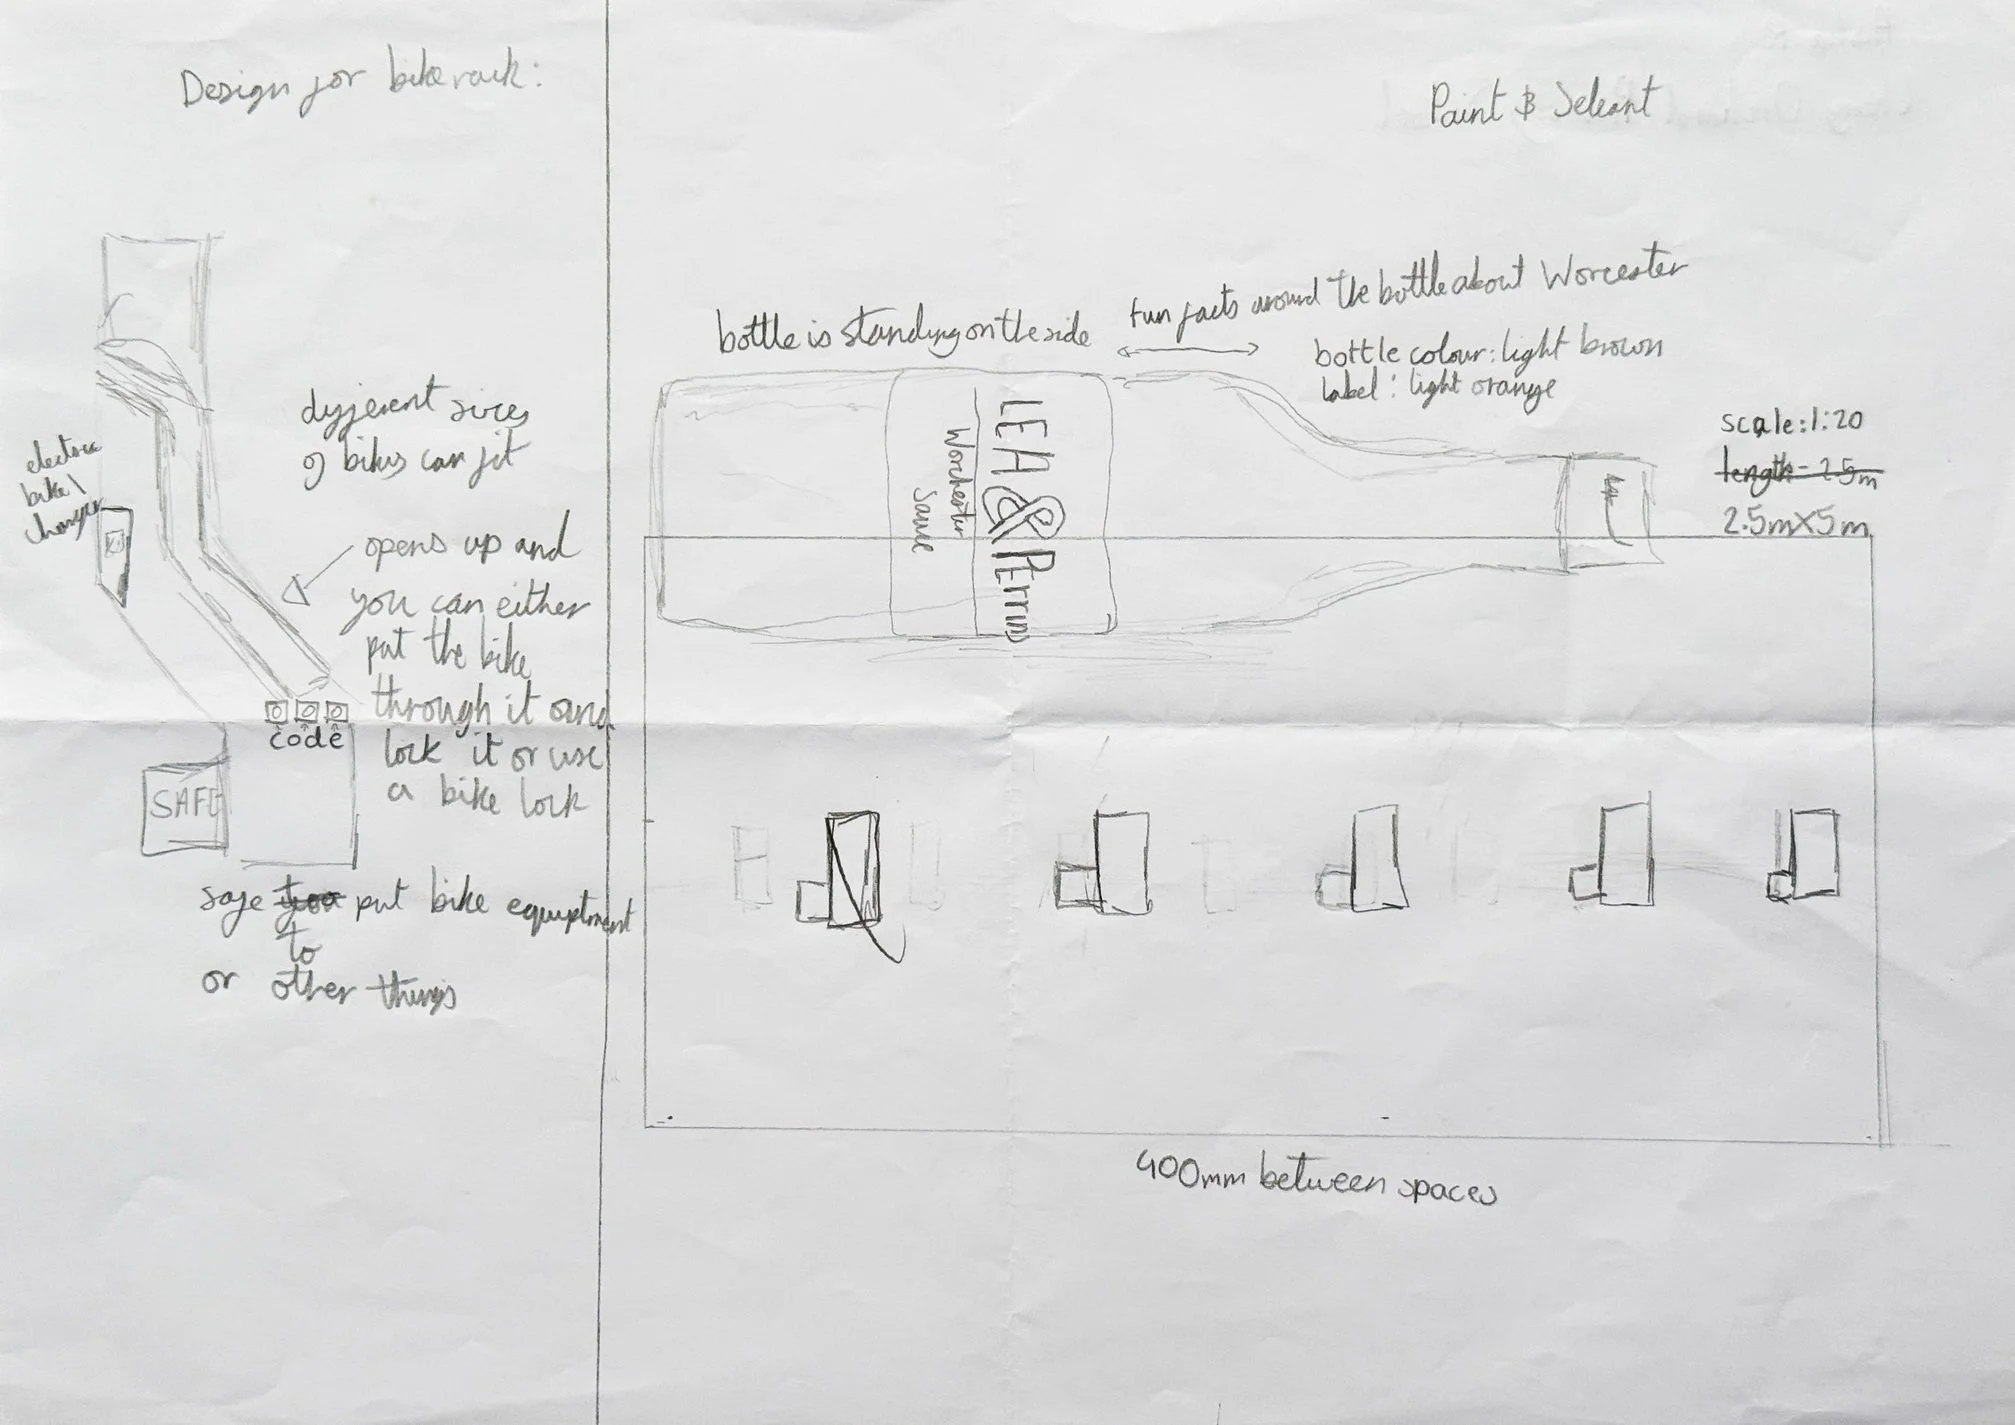 Design for bike rack:
Paint & Seleant
electric
bike
charger
different sizes
of bikes can fit
opens up and
you can either
put the bike
through it and
lock it or use
a bike lock
code
SAFE
safe put bike equiptment
to
or other things
bottle is standing on the side
fun facts around the bottle about Worcester
bottle colour: light brown
label: light orange
scale: 1:20
length - 2.5m
2.5m X 5m
LEA & PErrins
Worchester
Sauce
400mm between spaces